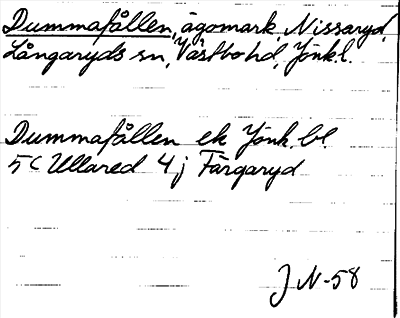 Dummafållen, ägomark, Nissaryd,
Långaryds sn, Västbo hd, Jönk.l.
Dummafållen ek Jönk. bl.
5C Ullared 4j Färgaryd
J N-58